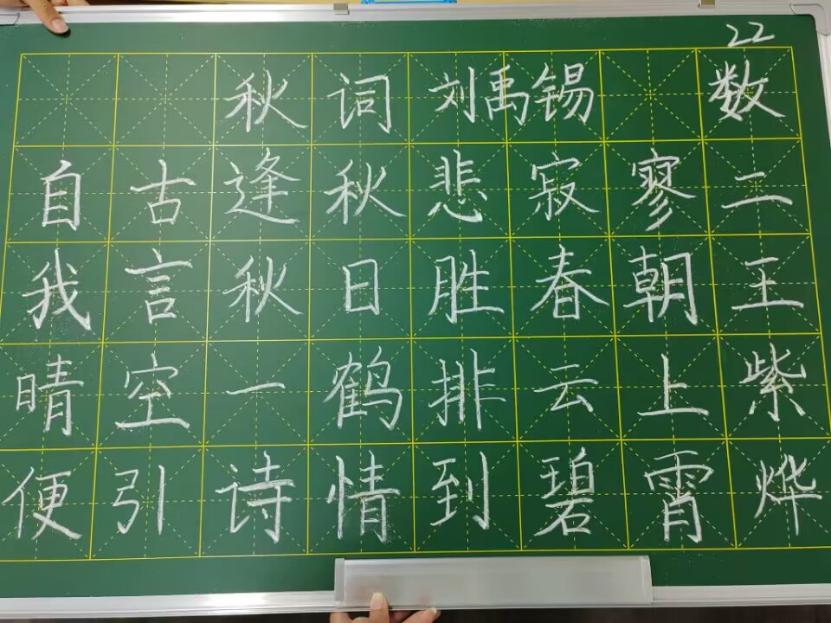 22
秋词 刘禹锡 数
自古逢秋悲寂寥二
我言秋日胜春朝王
晴空一鹤排云上紫
便引诗情到碧霄烨